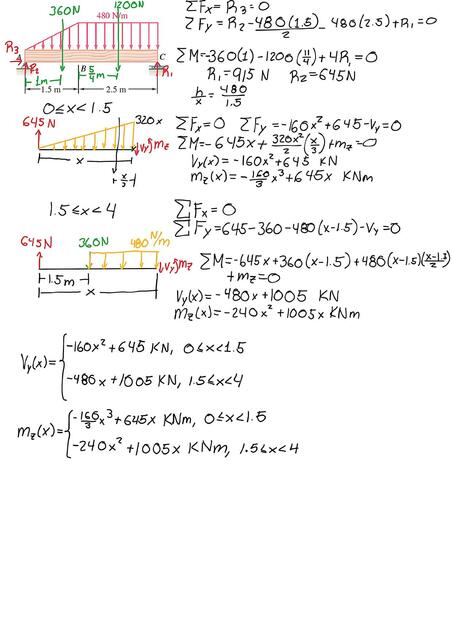 360N 1200N
480 N/m
R₃
R₂ B C R₁
1m 5/4 m
1.5 m 2.5 m
ΣFx = R₃ = 0
ΣFy = R₂ - 480(1.5)/2 - 480(2.5) + R₁ = 0
ΣM = -360(1) - 1200(11/4) + 4R₁ = 0
R₁ = 915 N R₂ = 645 N
h/x = 480/1.5
0 ≤ x < 1.5
645N 320x
Vy mz
x
x/3
ΣFx = 0 ΣFy = -160x² + 645 - Vy = 0
ΣM = -645x + 320x²/2 (x/3) + mz = 0
Vy(x) = -160x² + 645 KN
mz(x) = -160/3 x³ + 645x KNm
1.5 ≤ x < 4
645N 360N 480 N/m
Vy mz
1.5m
x
ΣFx = 0
ΣFy = 645 - 360 - 480(x-1.5) - Vy = 0
ΣM = -645x + 360(x-1.5) + 480(x-1.5)(x-1.5)/2
+ mz = 0
Vy(x) = -480x + 1005 KN
mz(x) = -240x² + 1005x KNm
Vy(x) = { -160x² + 645 KN, 0 ≤ x < 1.5
-480x + 1005 KN, 1.5 ≤ x < 4
mz(x) = { -160/3 x³ + 645x KNm, 0 ≤ x < 1.5
-240x² + 1005x KNm, 1.5 ≤ x < 4